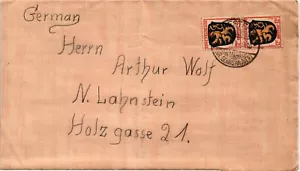 German
Herrn
Arthur Wolf
N. Lahnstein
Holzgasse 21.